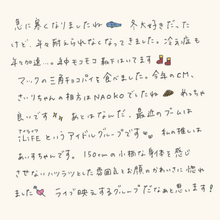 急に寒くなりましたね 冬大好きだった
けど、年々耐えられなくなってきました。冷え症も
年々加速…。年中モコモコ靴下はいてます
マックの三角チョコパイも食べました。今年のCM、
さいりちゃんの相方はNAOKOでしたね めっちゃ
良いです あとはなんだ、最近のブームは
iLiFE というアイドルグループです 私の推しは
あいすちゃんです。150cmの小柄な身体を感じ
させないハツラツとした雰囲気とお顔のかわいさに惚れ
ました ライブ映えするグループだなぁと思います!